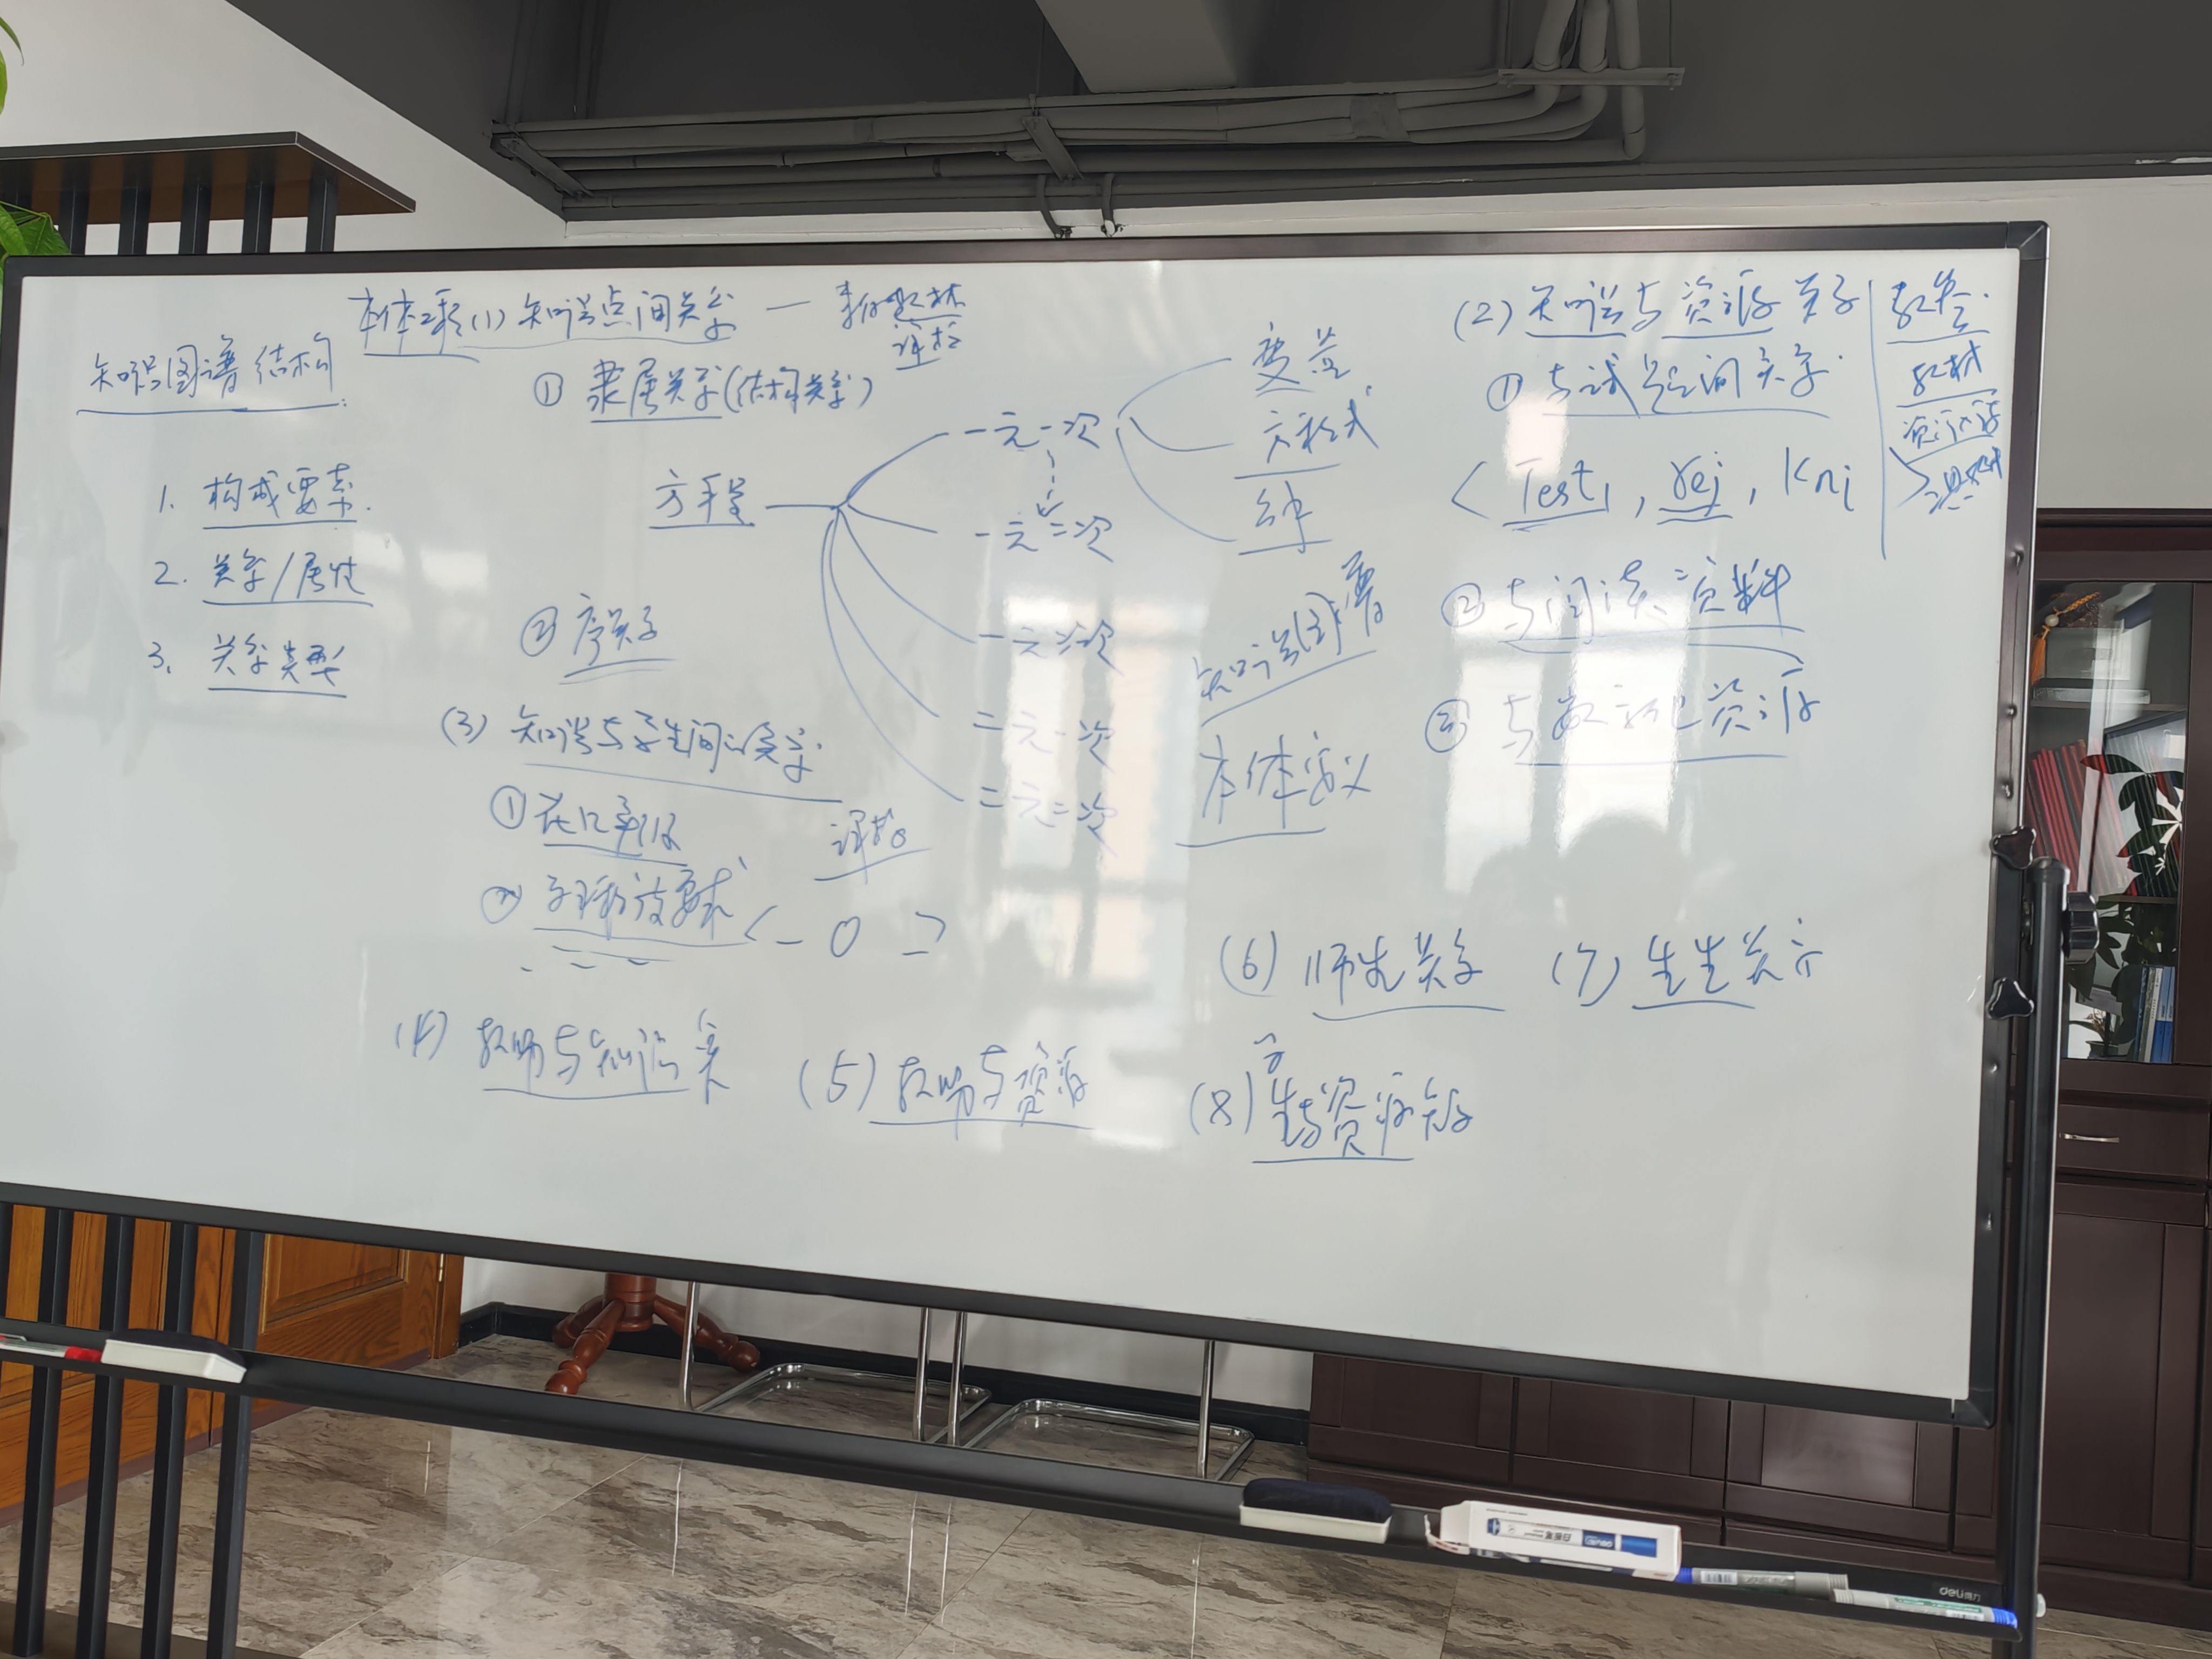 知识图谱结构
1. 构成要素.
2. 关系/属性
3. 关系类型
本体 (1) 知识点间关系 — 教材
课标
① 隶属关系(结构关系)
方程
一元一次
一元二次
一元三次
二元一次
二元二次
变量
方程式
② 序关系
知识图谱
本体定义
(2) 知识与资源关系
① 与试题间关系.
< Test₁, rej, Kni
② 与阅读资料
③ 与数字化资源
教材
资源
(3) 知识与学生间的关系.
①
②
(4) 教师与知识关
(5) 教师与资源
(6) 师生关系
(7) 生生关系
(8) 学生与资源
deli得力